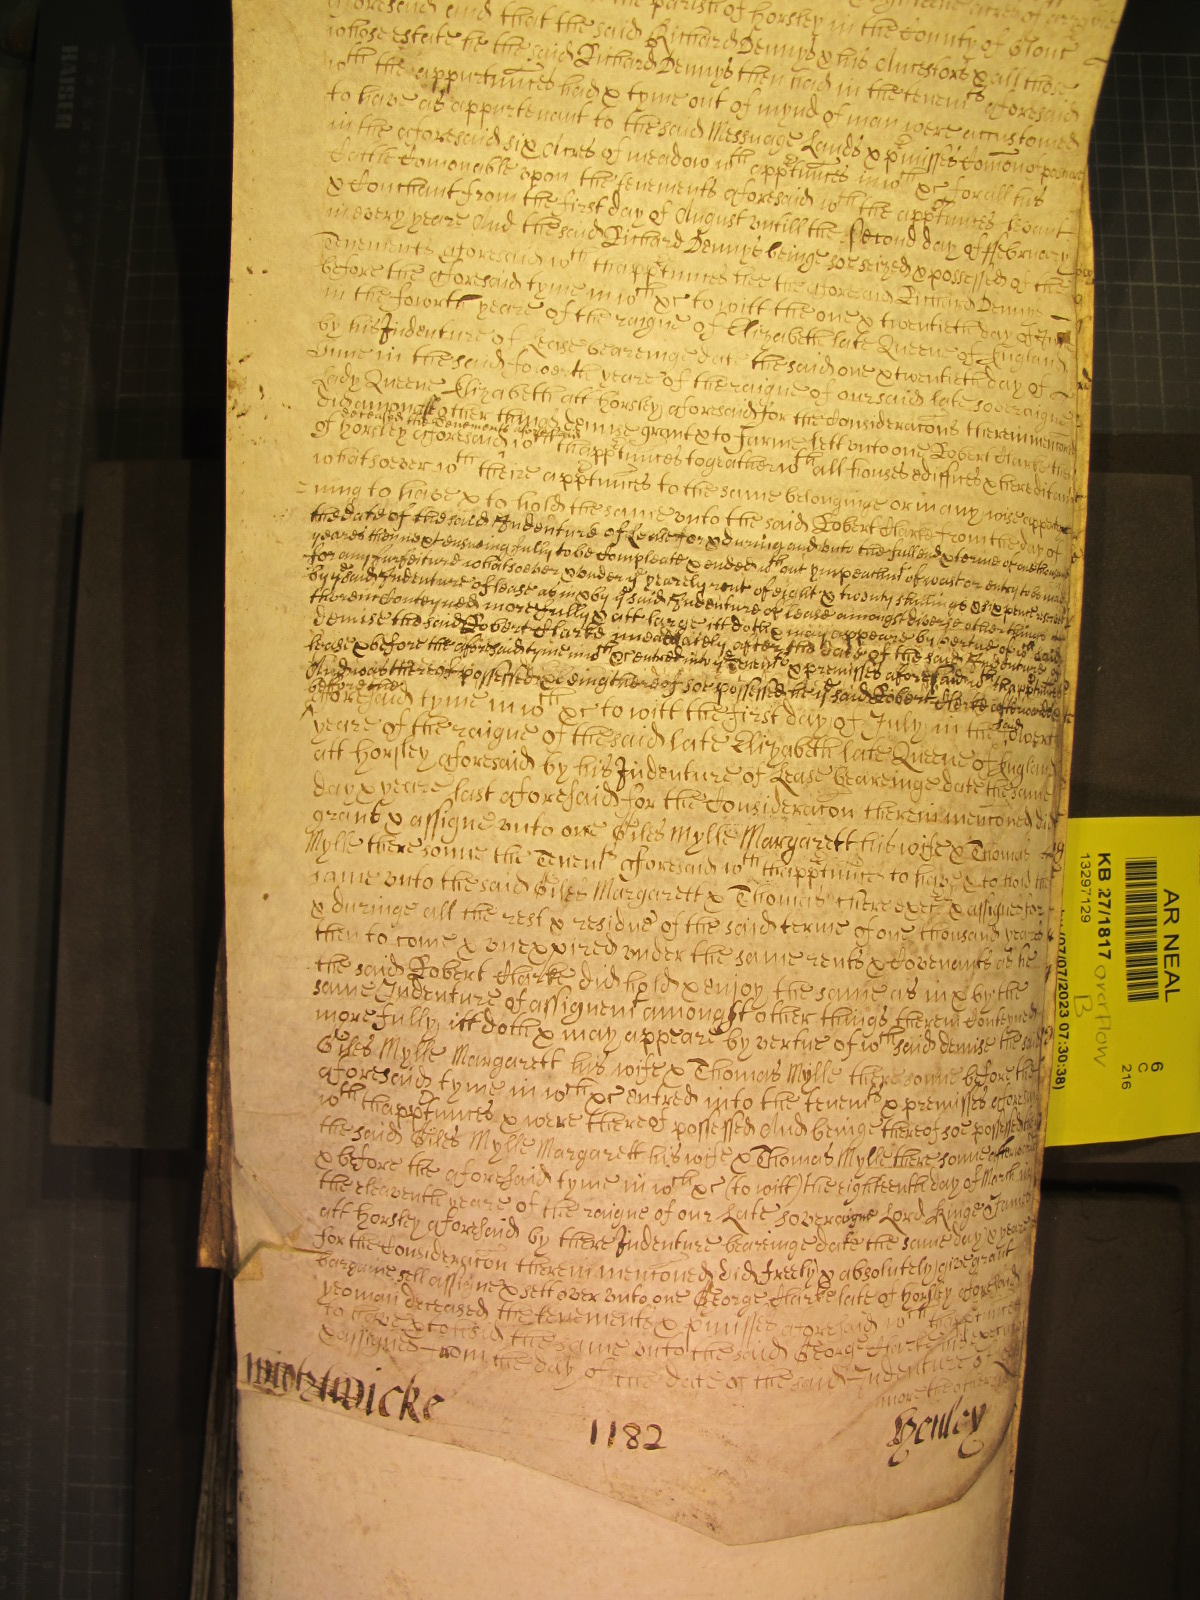 the parish of Horsley in the County of Glouc
aforesaid And that the said Richard Dennys & his Ancestors & all those
whose estate he the said Richard Dennys then had in the tenemts aforesaid
wth the appurtinces had & tyme out of mynd of man were accustomed
to have as appurtenant to the said Messuage Lands & pmisses Comon of pasture
in the aforesaid six Acres of meadow wth apptinces in wch &c for all his
Cattle Comonable upon the tenements aforesaid wth the apptinces levant
& Couchant from the first day of August untill the second day of ffebruary
in every yeare And the said Richard Dennys beinge soe seized & possessed of the
Tenements aforesaid wth thapptinces hee the aforesaid Richard Dennys
before the aforesaid tyme in wch &c to witt the one & twentieth day of June
in the fourth yeare of the raigne of Elizabeth late Queene of England
by his Indenture of Lease beareinge date the said one & twentieth day of
June in the said fowerth yeare of the raigne of our said late soveraigne
Lady Queene Elizabeth att Horsley aforesaid for the Consideracons therein mentioned
did amongst other things demise grant & to farme lett unto one Robert Clarke then
deceased the Tenements aforesaid
of Horsley aforesaid wth thapptinces togeather wth all houses edifices & hereditamts
whatsoever wth there apptinces to the same belonginge or in any wise apper
ning to have & to hold the same unto the said Robert Clarke from the day of
the date of the said Indenture of Lease for & during and unto the full end & terme of one thousand
yeares then next ensueing fully to be Compleate & ended wthout ympeachmt of wast or entry to be made
for any forfeiture whatsoever & under ye yearely rent of eight & twenty shillings & six pence
by ye said Indenture of lease as in & by ye said Indenture of lease amongst diverse other things
therein Conteyned more fully & att large itt doth & may appeare by vertue of wch said
demise the said Robert Clarke imediately after the date of the said Indenture of
lease & before the aforesaid tyme in wch &c entred into ye Tenemts & premisses aforesaid wth thapptinces
And was thereof possessed & being thereof soe possessed he ye said Robert Clarke afterwards
& before the
aforesaid tyme in wch &c to witt the first day of July in the said fowerth
yeare of the raigne of the said late Elizabeth late Queene of England
att Horsley aforesaid by his Indenture of Lease beareinge date the same
day & yeare last aforesaid for the Consideracon therein mentioned did
grant & assigne unto one Giles Mylle Margarett his wife & Thomas
Mylle there sonne the Tenemts aforesaid wth thapptinces to have & to hold the
same unto the said Giles Margarett & Thomas there execrs & assignes for
& duringe all the rest & residue of the said terme of one thousand yeares
then to come & unexpired under the same rents & Covenants as he
the said Robert Clarke did hold & enjoy the same as in & by the
same Indenture of assignemt amongst other things therein Conteyned
more fully itt doth & may appeare by vertue of wch said demise the said
Giles Mylle Margarett his wife & Thomas Mylle there sonne before the
aforesaid tyme in wch &c entred into the tenemts & premisses aforesaid
wth thapptinces & were thereof possessed And beinge thereof soe possessed
the said Giles Mylle Margarett his wife & Thomas Mylle there sonne afterwards
& before the aforesaid tyme in wch &c (to witt) the eighteenth day of March in
the eleaventh yeare of the raigne of our Late soveraigne Lord Kinge James
att Horsley aforesaid by there Indenture beareinge date the same day & yeare
for the Consideracon therein mentioned did freely & absolutely give grant
bargaine sell assigne & sett over unto one George Clarke late of Horsley aforesaid
yeoman deceased the tenements & pmisses aforesaid wth thapptinces
to have & to hold the same unto the said George Clarke his execrs
& assignes from the day of the date of the said Indenture of
more the other
Henley
1182
AR NEAL
KB 27/1817 overflow
13297129
B
6
C
216
(07/07/2023 07:30:38)
KAISER